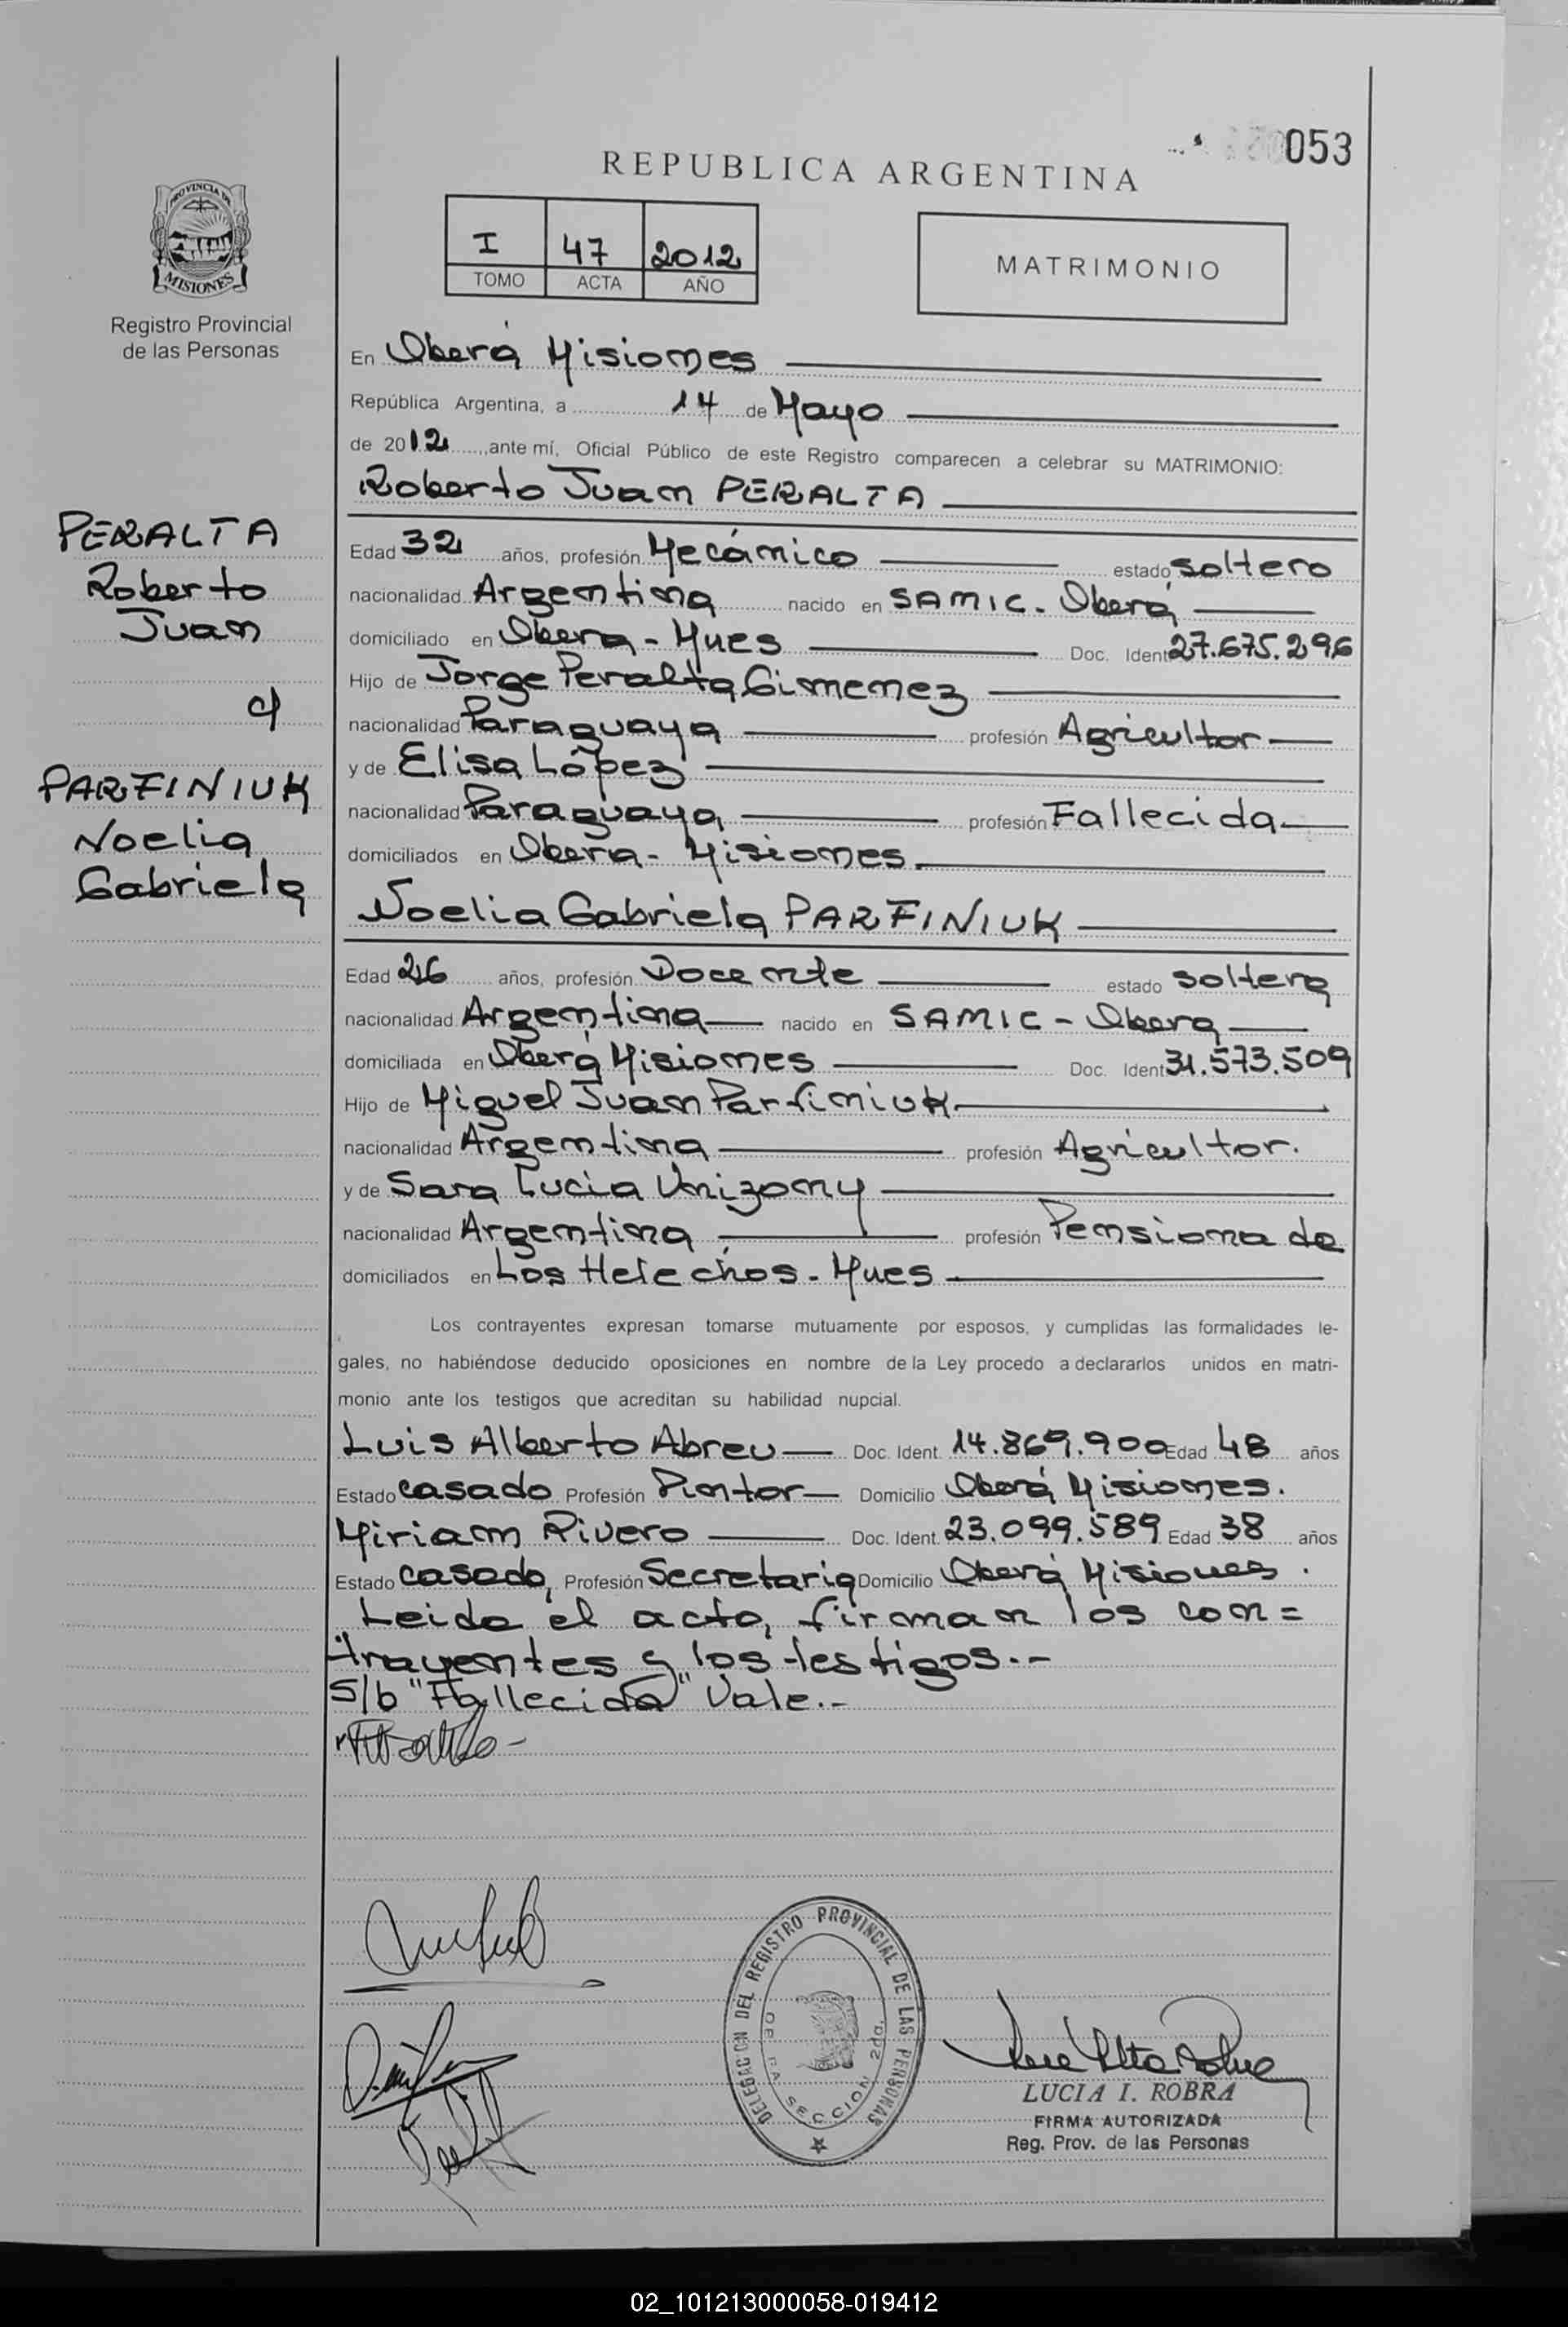 053
REPUBLICA ARGENTINA
PROVINCIA DE
MISIONES
Registro Provincial
de las Personas
I 47 2012
TOMO ACTA AÑO
MATRIMONIO
En Oberá Misiones
República Argentina, a 14 de Mayo
de 2012, ante mí, Oficial Público de este Registro comparecen a celebrar su MATRIMONIO:
Roberto Juan PERALTA
PERALTA
Roberto
Juan
c/
PARFINIUK
Noelia
Gabriela
Edad 32 años, profesión Mecánico estado soltero
nacionalidad Argentina nacido en SAMIC. Oberá
domiciliado en Obera - Mnes Doc. Ident 27.675.296
Hijo de Jorge Peralta Gimenez
nacionalidad Paraguaya profesión Agricultor
y de Elisa López
nacionalidad Paraguaya profesión Fallecida
domiciliados en Obera - Misiones.
Noelia Gabriela PARFINIUK
Edad 26 años, profesión Docente estado soltera
nacionalidad Argentina nacido en SAMIC - Obera
domiciliada en Oberá Misiones Doc. Ident 31.573.509
Hijo de Miguel Juan Parfiniuk
nacionalidad Argentina profesión Agricultor.
y de Sara Lucia
nacionalidad Argentina profesión Pensionada
domiciliados en Los Helechos - Mnes
Los contrayentes expresan tomarse mutuamente por esposos, y cumplidas las formalidades le-
gales, no habiéndose deducido oposiciones en nombre de la Ley procedo a declararlos unidos en matri-
monio ante los testigos que acreditan su habilidad nupcial.
Luis Alberto Abreu Doc. Ident. 14.869.900 Edad 48 años
Estado casado Profesión Pintor Domicilio Oberá Misiones.
Miriam Rivero Doc. Ident. 23.099.589 Edad 38 años
Estado casada, Profesión Secretaria Domicilio Oberá Misiones.
Leida el acta, firman los con=
trayentes y los testigos.-
S/b "Fallecida" Vale.-
DELEGACION DEL REGISTRO PROVINCIAL DE LAS PERSONAS
SECCION 2da.
LUCIA I. ROBRA
FIRMA AUTORIZADA
Reg. Prov. de las Personas
02_101213000058-019412